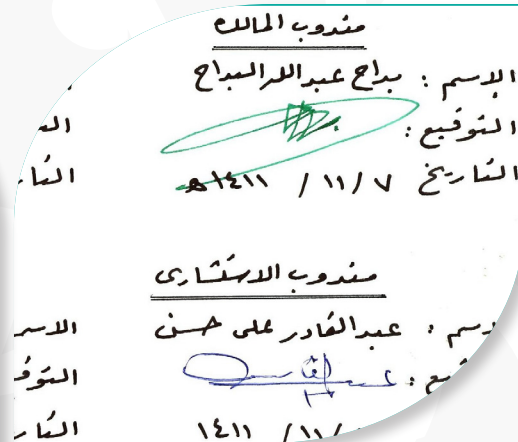 مندوب المالك
الاسم : بداح عبدالله البداح
التوقيع :
التاريخ ٧ / ١١ / ١٤١١هـ
مندوب الاستشارى
عبدالقادر على حسن
١١ / ١٤١١